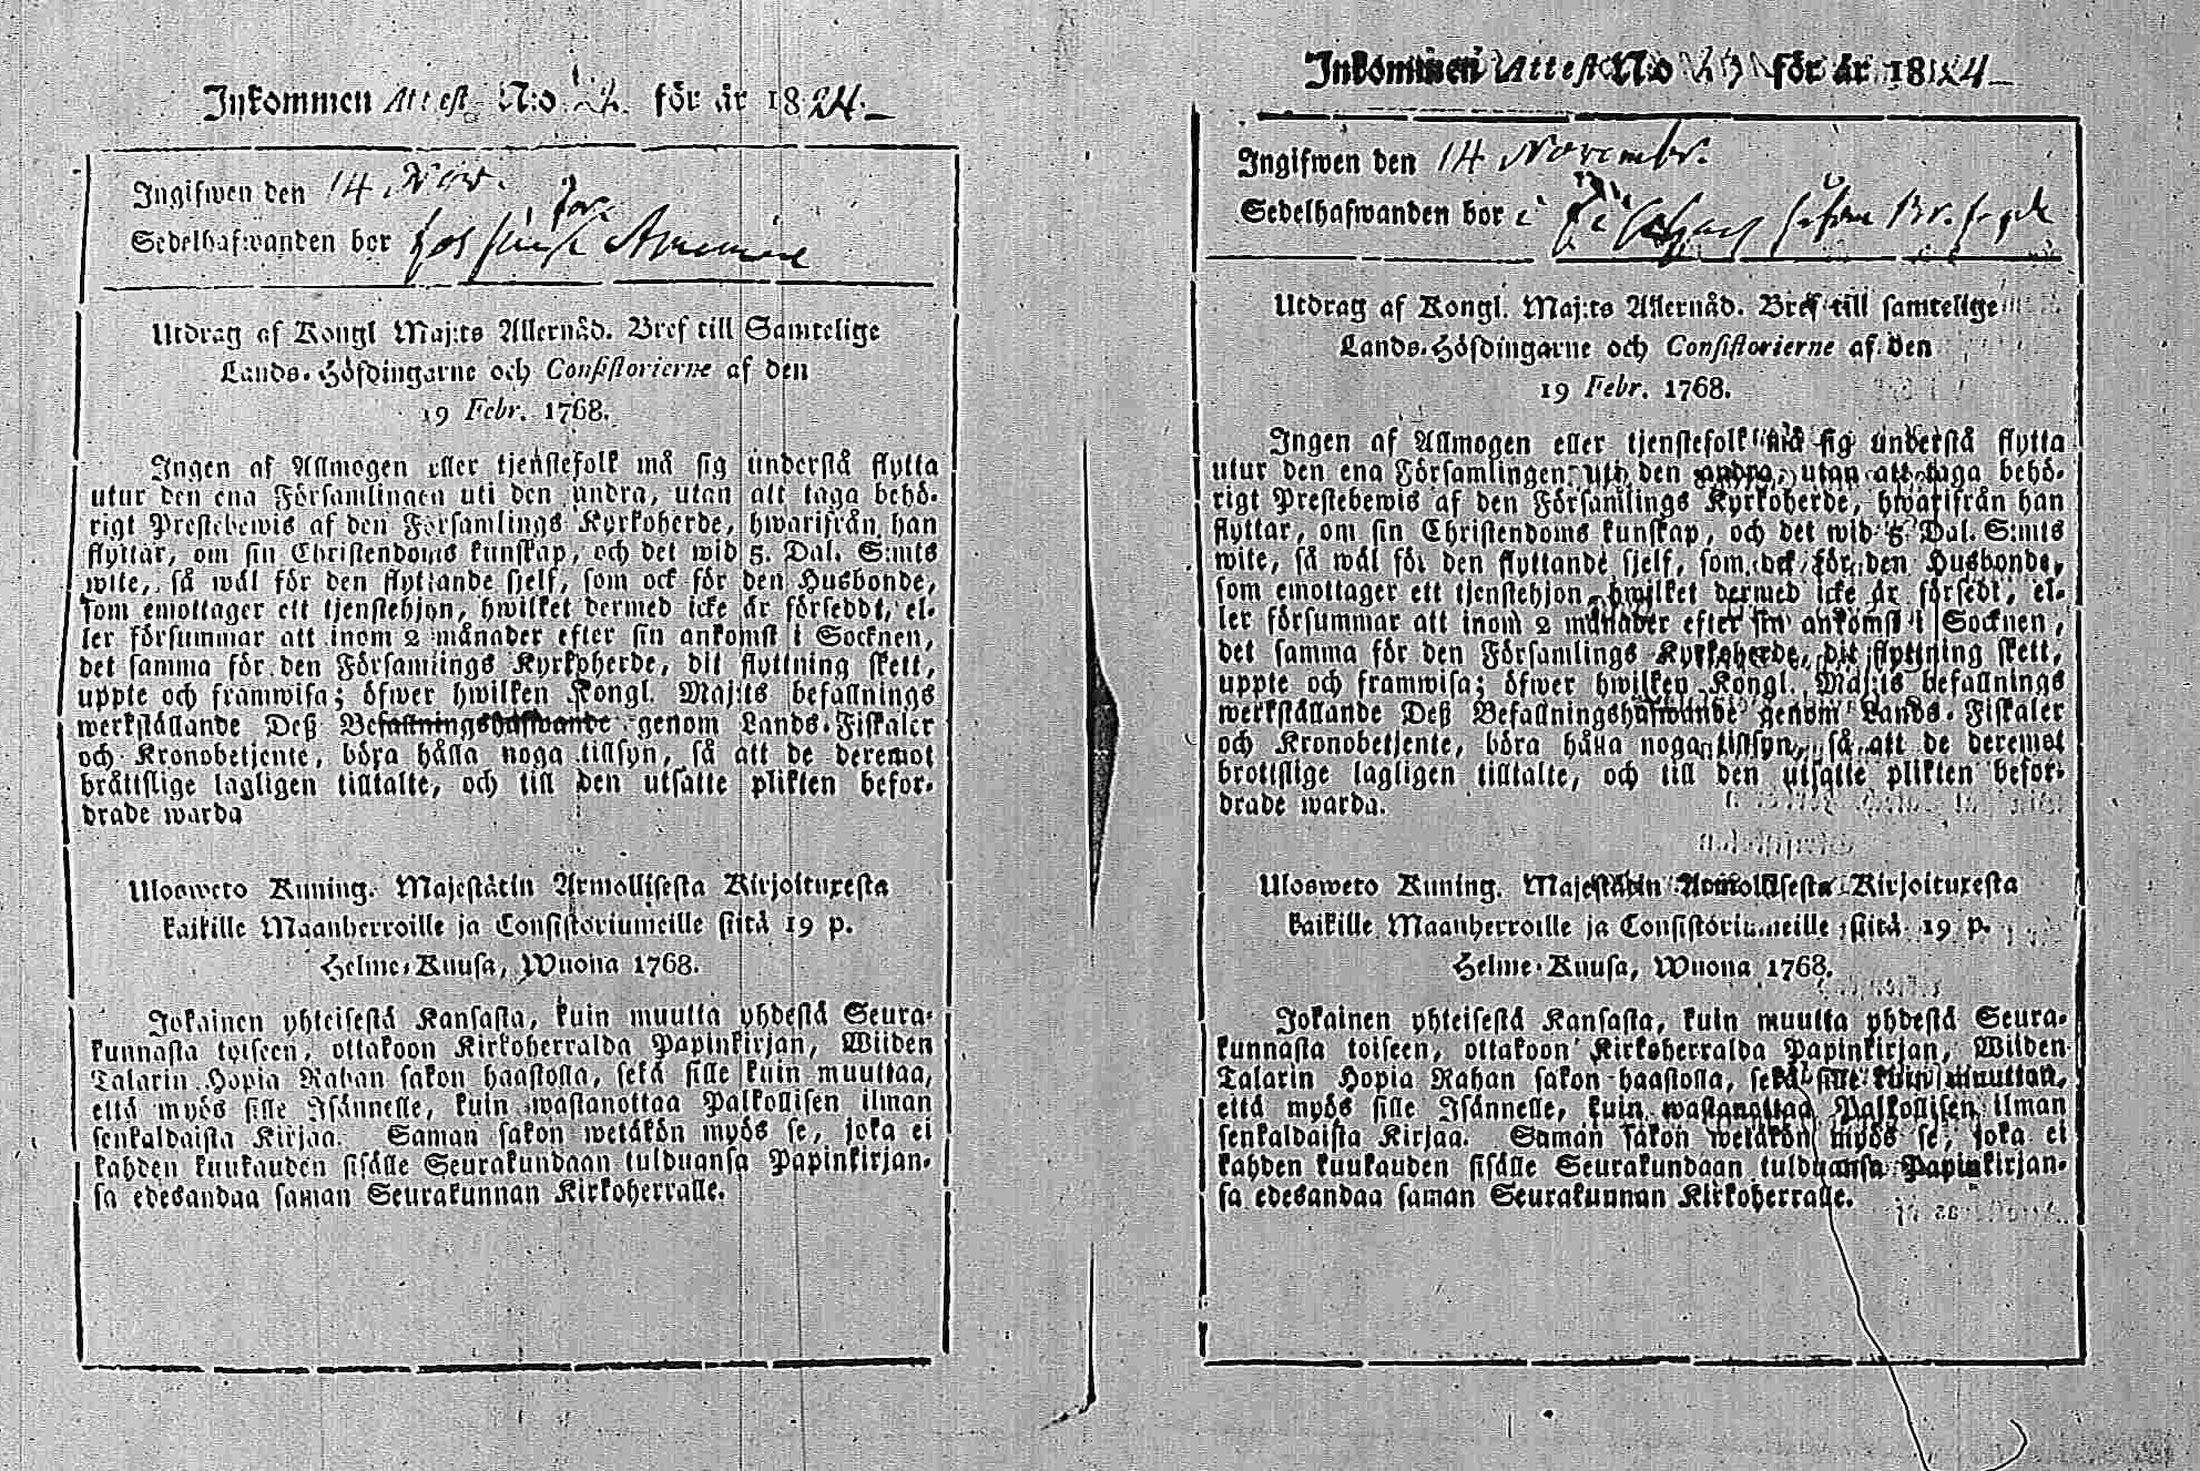 Inkommen Attest N:o för år 1824.
Ingifwen den 14 Nov.
Sedelhafwanden bor hos
Utdrag af Kongl Maj:ts Allernåd. Bref till Samtelige
Lands-Höfdingarne och Consistorierne af den
19 Febr. 1768.
Ingen af Allmogen eller tjenstefolk må sig understå flytta
utur den ena Församlingen uti den andra, utan att taga behö-
rigt Prestebewis af den Församlings Kyrkoherde, hwarifrån han
flyttar, om sin Christendoms kunskap, och det wid 5. Dal. S:mts
wite, så wäl för den flyttande sjelf, som ock för den Husbonde,
som emottager ett tjenstehjon, hwilket dermed icke är försedt, el-
ler försummar att inom 2 månader efter sin ankomst i Socknen,
det samma för den Församlings Kyrkoherde, dit flyttning skett,
uppte och framwisa; öfwer hwilken Kongl. Maj:ts befallnings
werkställande Deß Befallningshafwande genom Lands-Fiskaler
och Kronobetjente, böra hålla noga tillsyn, så att de deremot
bråttslige lagligen tilltalte, och till den utsatte plikten befor-
drade warda
Ulosweto Kuning. Majestätin Armollisesta Kirjoituxesta
kaikille Maanherroille ja Consistoriumeille siitä 19 p.
Helme-Kuusa, Wuona 1768.
Jokainen yhteisestä Kansasta, kuin muutta yhdestä Seura-
kunnasta toiseen, ottakoon Kirkoherralda Papinkirjan, Wiiden
Talarin Hopia Rahan sakon haastolla, sekä sille kuin muuttaa,
että myös sille Isännelle, kuin wastanottaa Palkollisen ilman
senkaldaista Kirjaa. Saman sakon wetäkön myös se, joka ei
kahden kuukauden sisälle Seurakundaan tulduansa Papinkirjan-
sa edesandaa saman Seurakunnan Kirkoherralle.
Inkommen Attest N:o för år 1824
Ingifwen den 14 Novembr.
Sedelhafwanden bor i
Utdrag af Kongl. Maj:ts Allernåd. Bref till samtelige
Lands-Höfdingarne och Consistorierne af den
19 Febr. 1768.
Ingen af Allmogen eller tjenstefolk må sig understå flytta
utur den ena Församlingen uti den andra, utan att taga behö-
rigt Prestebewis af den Församlings Kyrkoherde, hwarifrån han
flyttar, om sin Christendoms kunskap, och det wid 5. Dal. S:mts
wite, så wäl för den flyttande sjelf, som ock för den Husbonde,
som emottager ett tjenstehjon, hwilket dermed icke är försedt, el-
ler försummar att inom 2 månader efter sin ankomst i Socknen,
det samma för den Församlings Kyrkoherde, dit flyttning skett,
uppte och framwisa; öfwer hwilken Kongl. Maj:ts befallnings
werkställande Deß Befallningshafwande genom Lands-Fiskaler
och Kronobetjente, böra hålla noga tillsyn, så att de deremot
brottslige lagligen tilltalte, och till den utsatte plikten befor-
drade warda.
Ulosweto Kuning. Majestätin Armollisesta Kirjoituxesta
kaikille Maanherroille ja Consistoriumeille siitä 19 p.
Helme-Kuusa, Wuona 1768.
Jokainen yhteisestä Kansasta, kuin muutta yhdestä Seura-
kunnasta toiseen, ottakoon Kirkoherralda Papinkirjan, Wiiden
Talarin Hopia Rahan sakon haastolla, sekä sille kuin muuttaa,
että myös sille Isännelle, kuin wastanottaa Palkollisen ilman
senkaldaista Kirjaa. Saman sakon wetäkön myös se, joka ei
kahden kuukauden sisälle Seurakundaan tulduansa Papinkirjan-
sa edesandaa saman Seurakunnan Kirkoherralle.